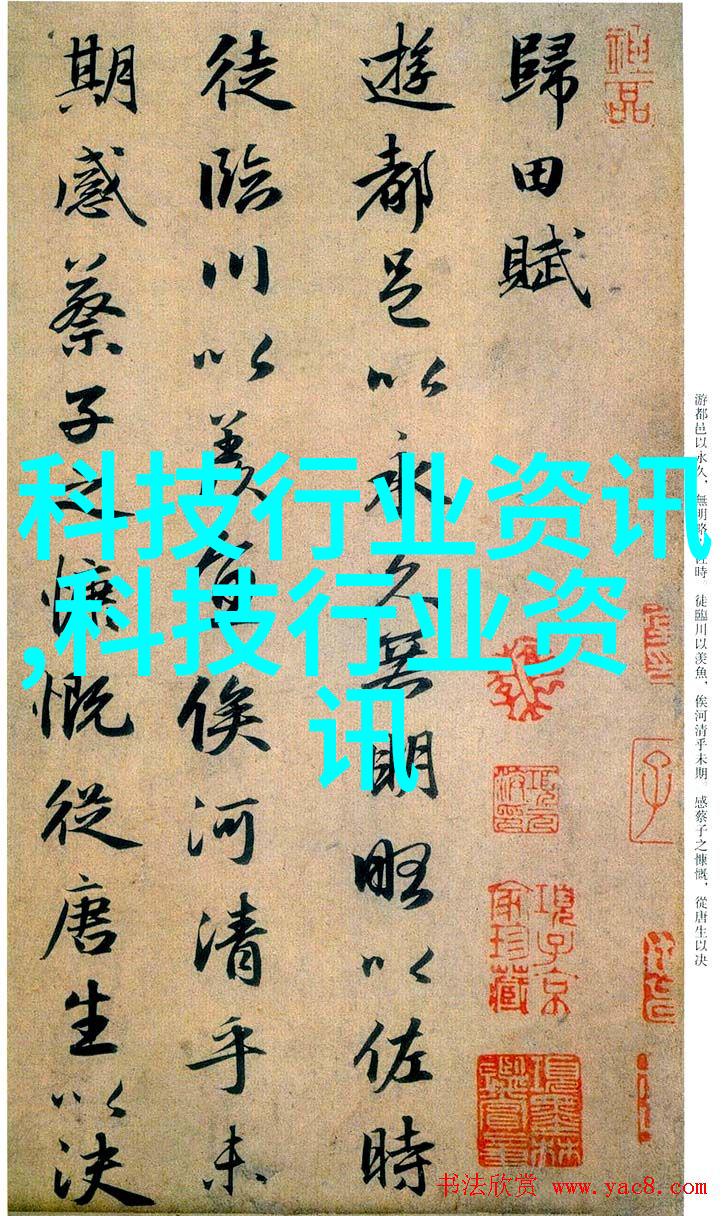 神品
歸田賦
遊都邑以永久無明略以佐時
徒臨川以羨魚俟河清乎未
期感蔡子之慷慨從唐生以決
科技行业资讯
,科技行业资
讯
游都邑以永久，無明略佐時。徒臨川以羨魚，俟河清乎未期。感蔡子之慷慨，從唐生以决
子
項子京家珍藏
項墨林鑑賞章
书法欣赏 www.yac8.com